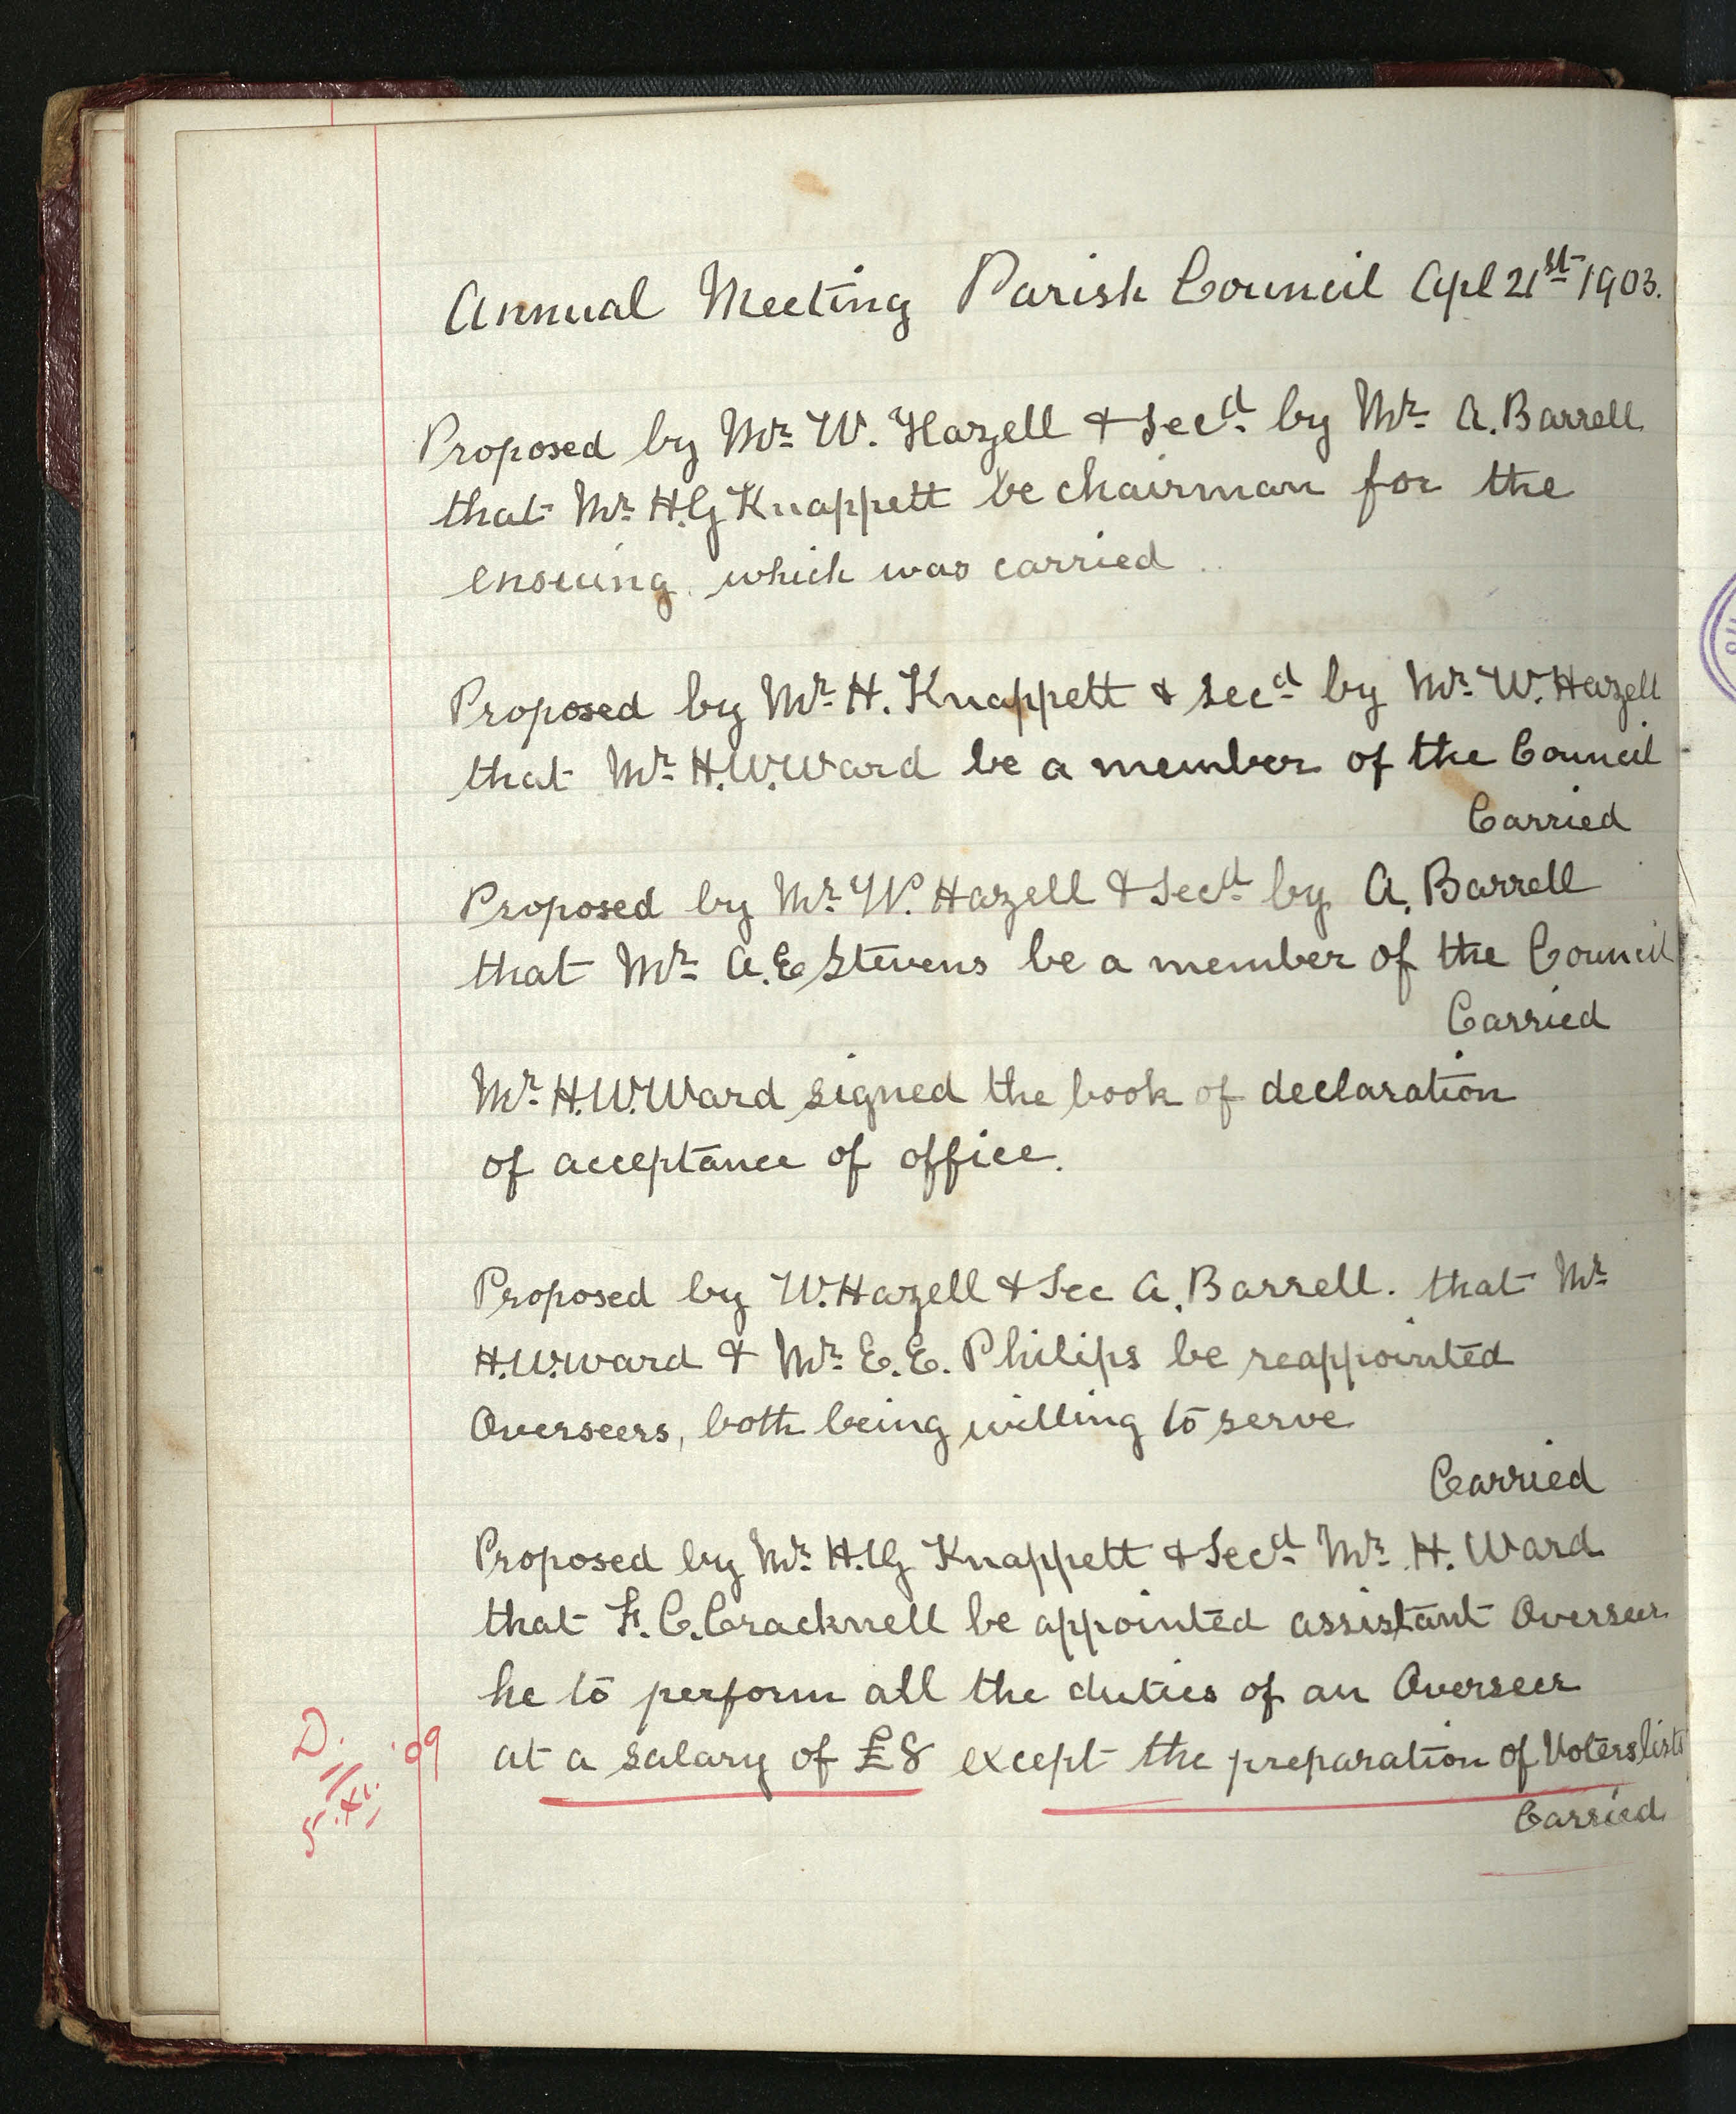 Annual Meeting Parish Council Apl 21st 1903.
Proposed by Mr W. Hazell & Secd by Mr A. Barrell
that Mr H.G Knappett be chairman for the
ensuing which was carried
Proposed by Mr H. Knappett & Secd by Mr W. Hazell
that Mr H.W.Ward be a member of the Council
Carried
Proposed by Mr W. Hazell & Secd by A. Barrell
that Mr A.E Stevens be a member of the Council
Carried
Mr H.W.Ward signed the book of declaration
of acceptance of office.
Proposed by W.Hazell & Sec A. Barrell. that Mr
H.W.Ward & Mr E.E. Philips be reappointed
Overseers, both being willing to serve
Carried
Proposed by Mr H.G Knappett & Secd Mr H. Ward
that F.C.Cracknell be appointed assistant Overseer
he to perform all the duties of an Overseer
at a salary of £8 except the preparation of Voters lists
Carried
D. '09
5.XI.